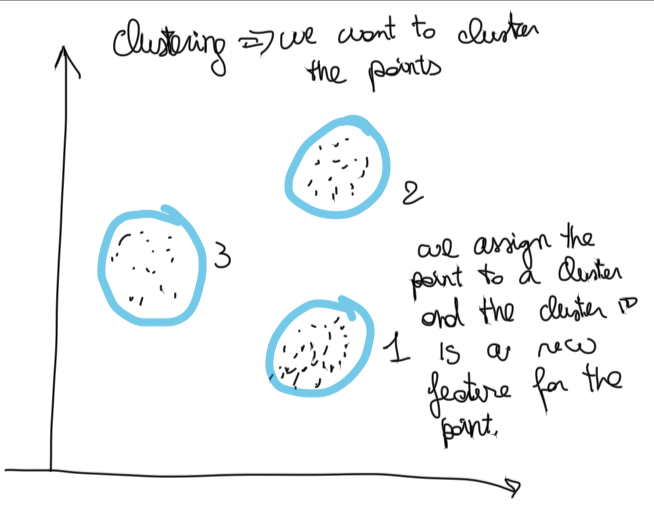 Clustering => we want to cluster
the points
2
3
we assign the
point to a cluster
and the cluster ID
1
is a new
feature for the
point.